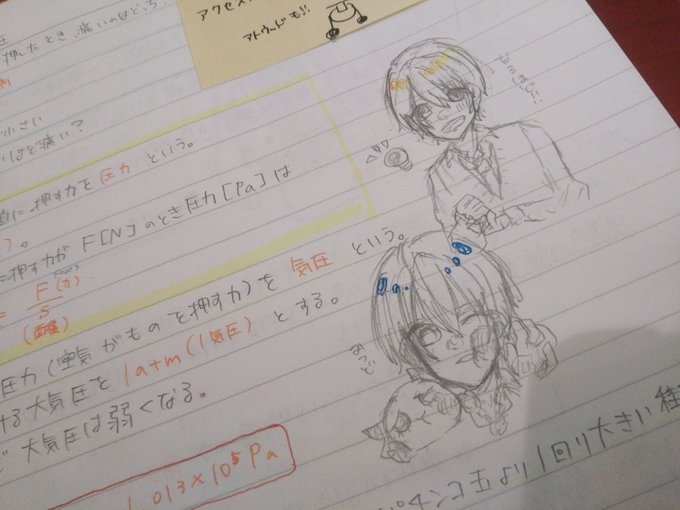 アクセス
アトウッドも!!
押したとき、痛いのはどっち?
小さい
いほど痛い?
直に押す力を圧力という。
に押す力がF[N]のとき圧力[Pa]は
= F(力)
S
(面積)
圧力(空気がものを押す力)を気圧という。
ける大気圧を1atm(1気圧)とする。
大気圧は弱くなる。
1.013×10⁵Pa
パチンコ玉より1回り大きい